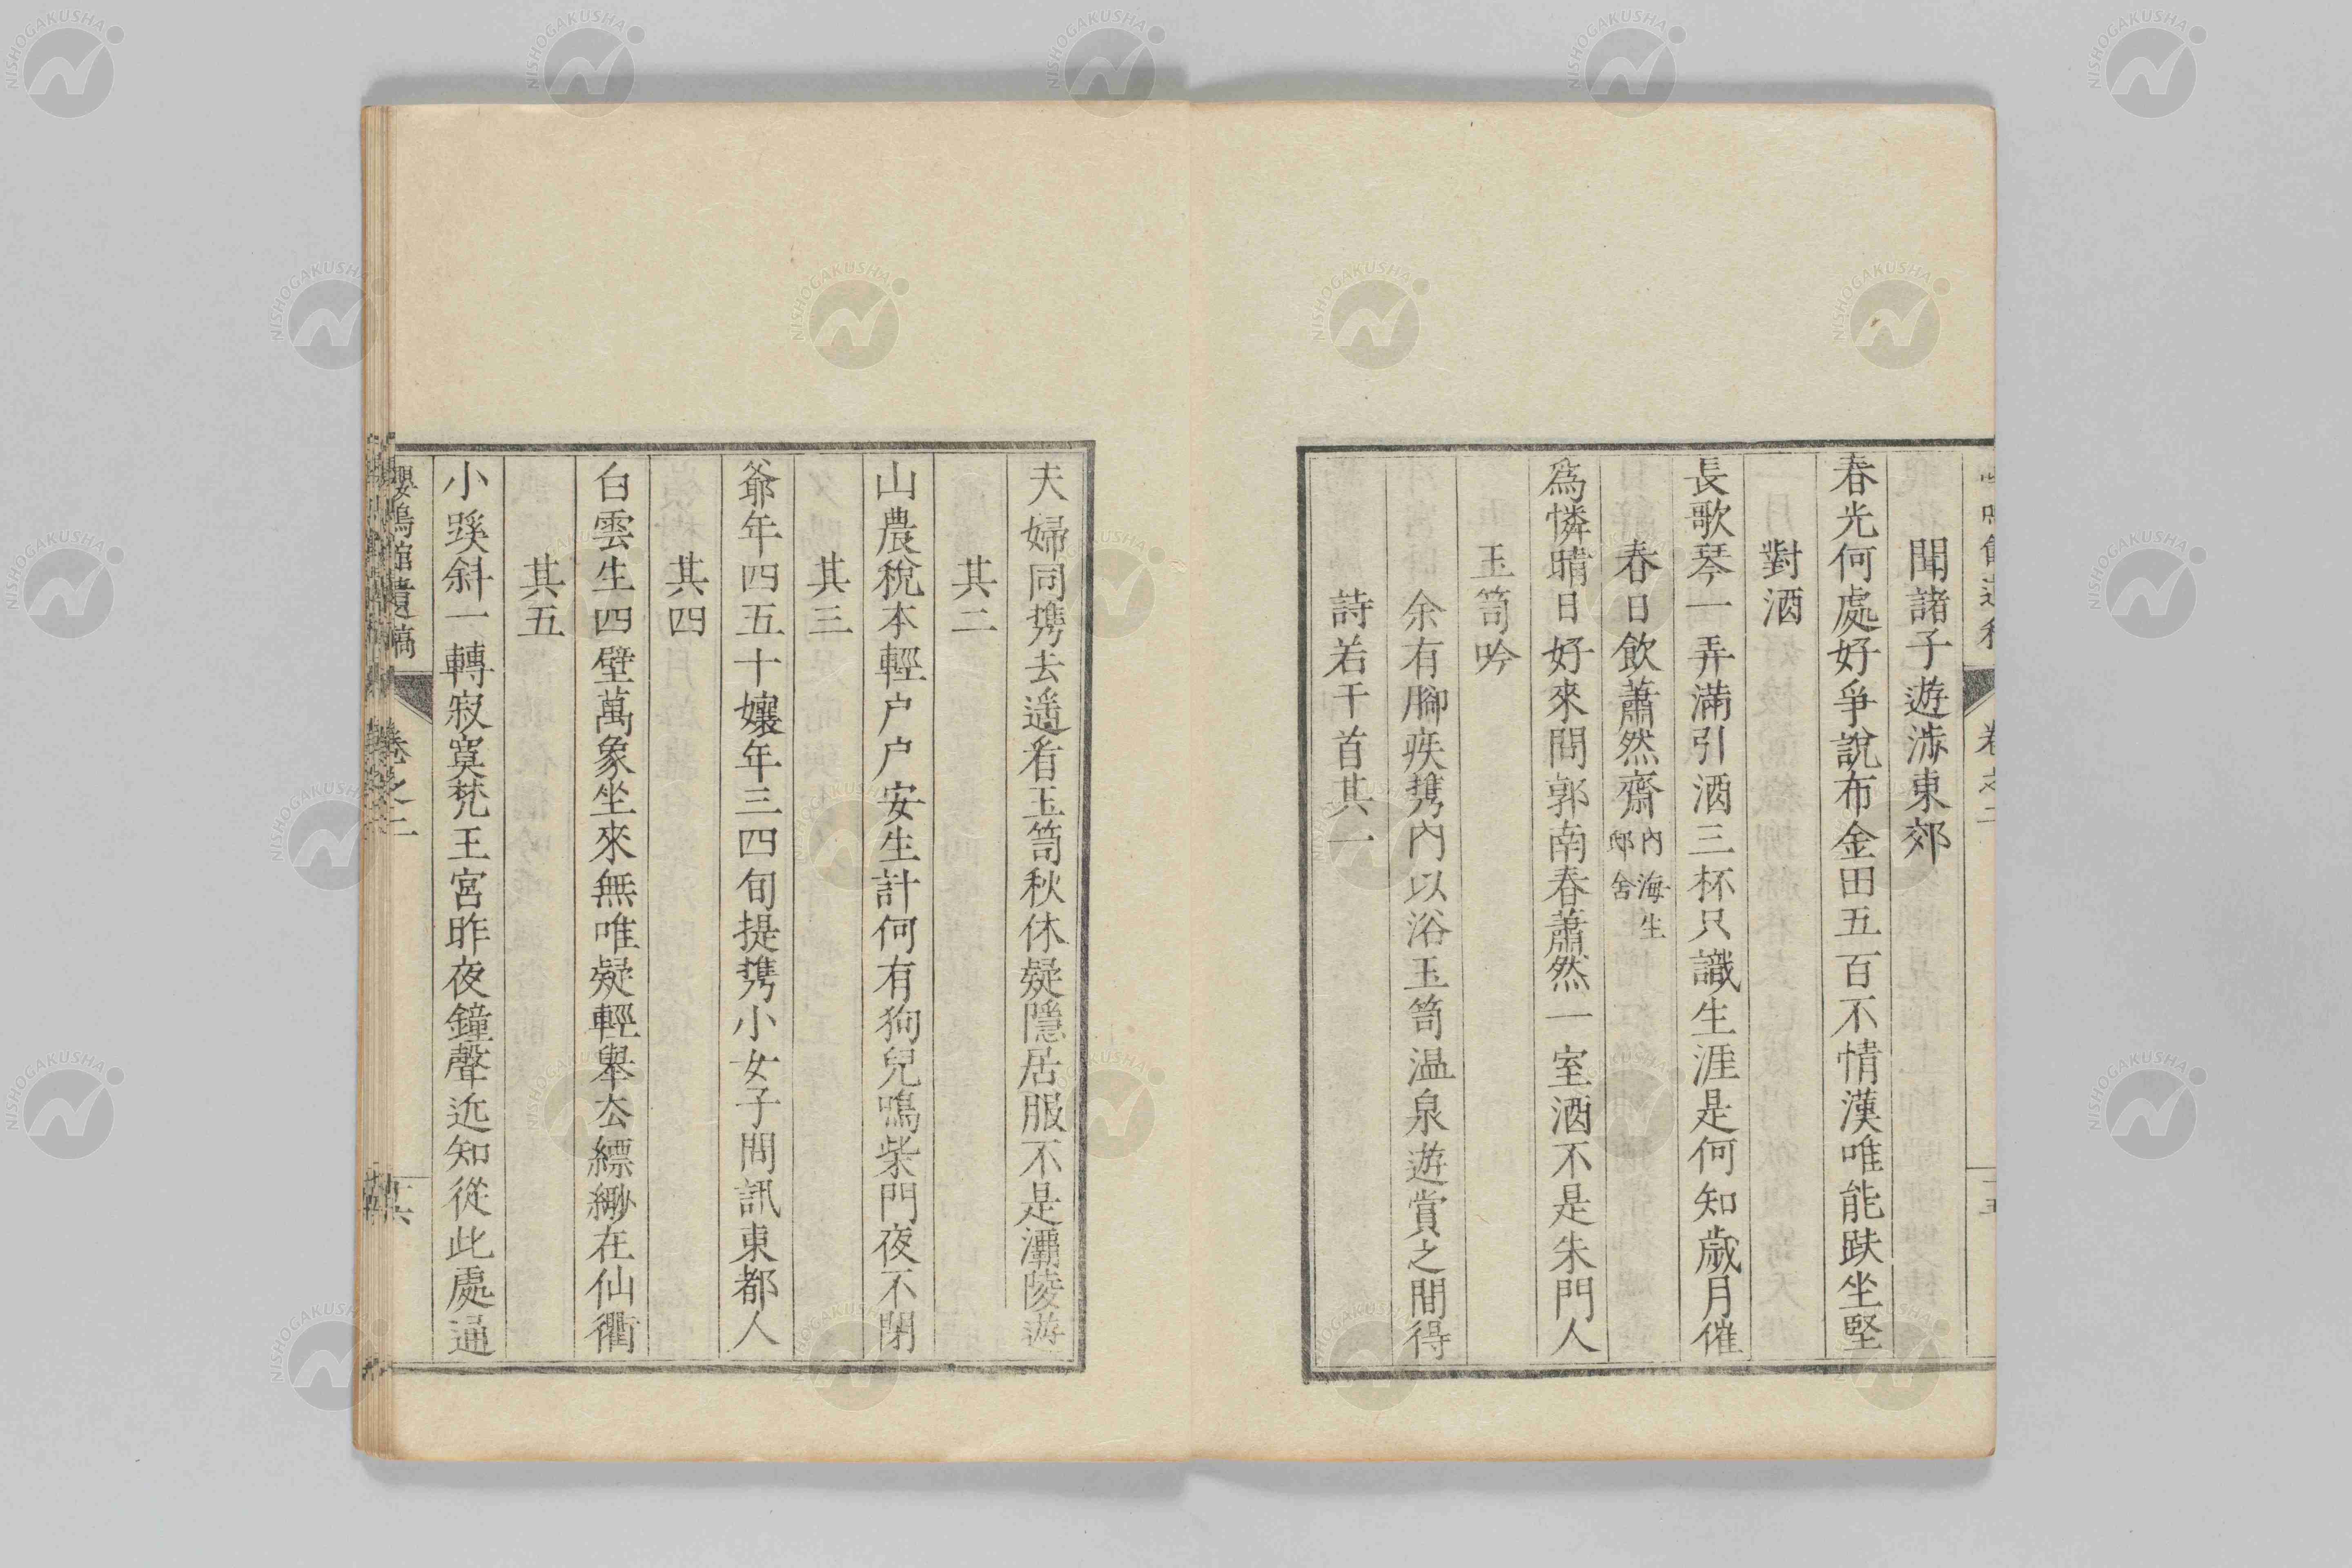 聞諸子遊游東郊
春光何處好爭說布金田五百不情漢唯能趺坐堅
對酒
長歌琴一弄滿引酒三杯只識生涯是何知歲月催
春日飲蕭然齋內海生邸舍
爲憐晴日好來問郭南春蕭然一室酒不是朱門人
玉笥吟
余有腳疾携內以浴玉笥温泉遊賞之間得
詩若干首其一
夫婦同携去遥看玉笥秋休疑隱居服不是灞陵游
其二
山農稅本輕户户安生計何有狗兒鳴柴門夜不閉
其三
爺年四五十孃年三四旬提携小女子問訊東都人
其四
白雲生四壁萬象坐來無唯疑輕舉去縹緲在仙衢
其五
小蹊斜一轉寂寞梵王宮昨夜鐘聲近知從此處通
嚶鳴館遺稿
卷之二
十六
NISHOGAKUSHA